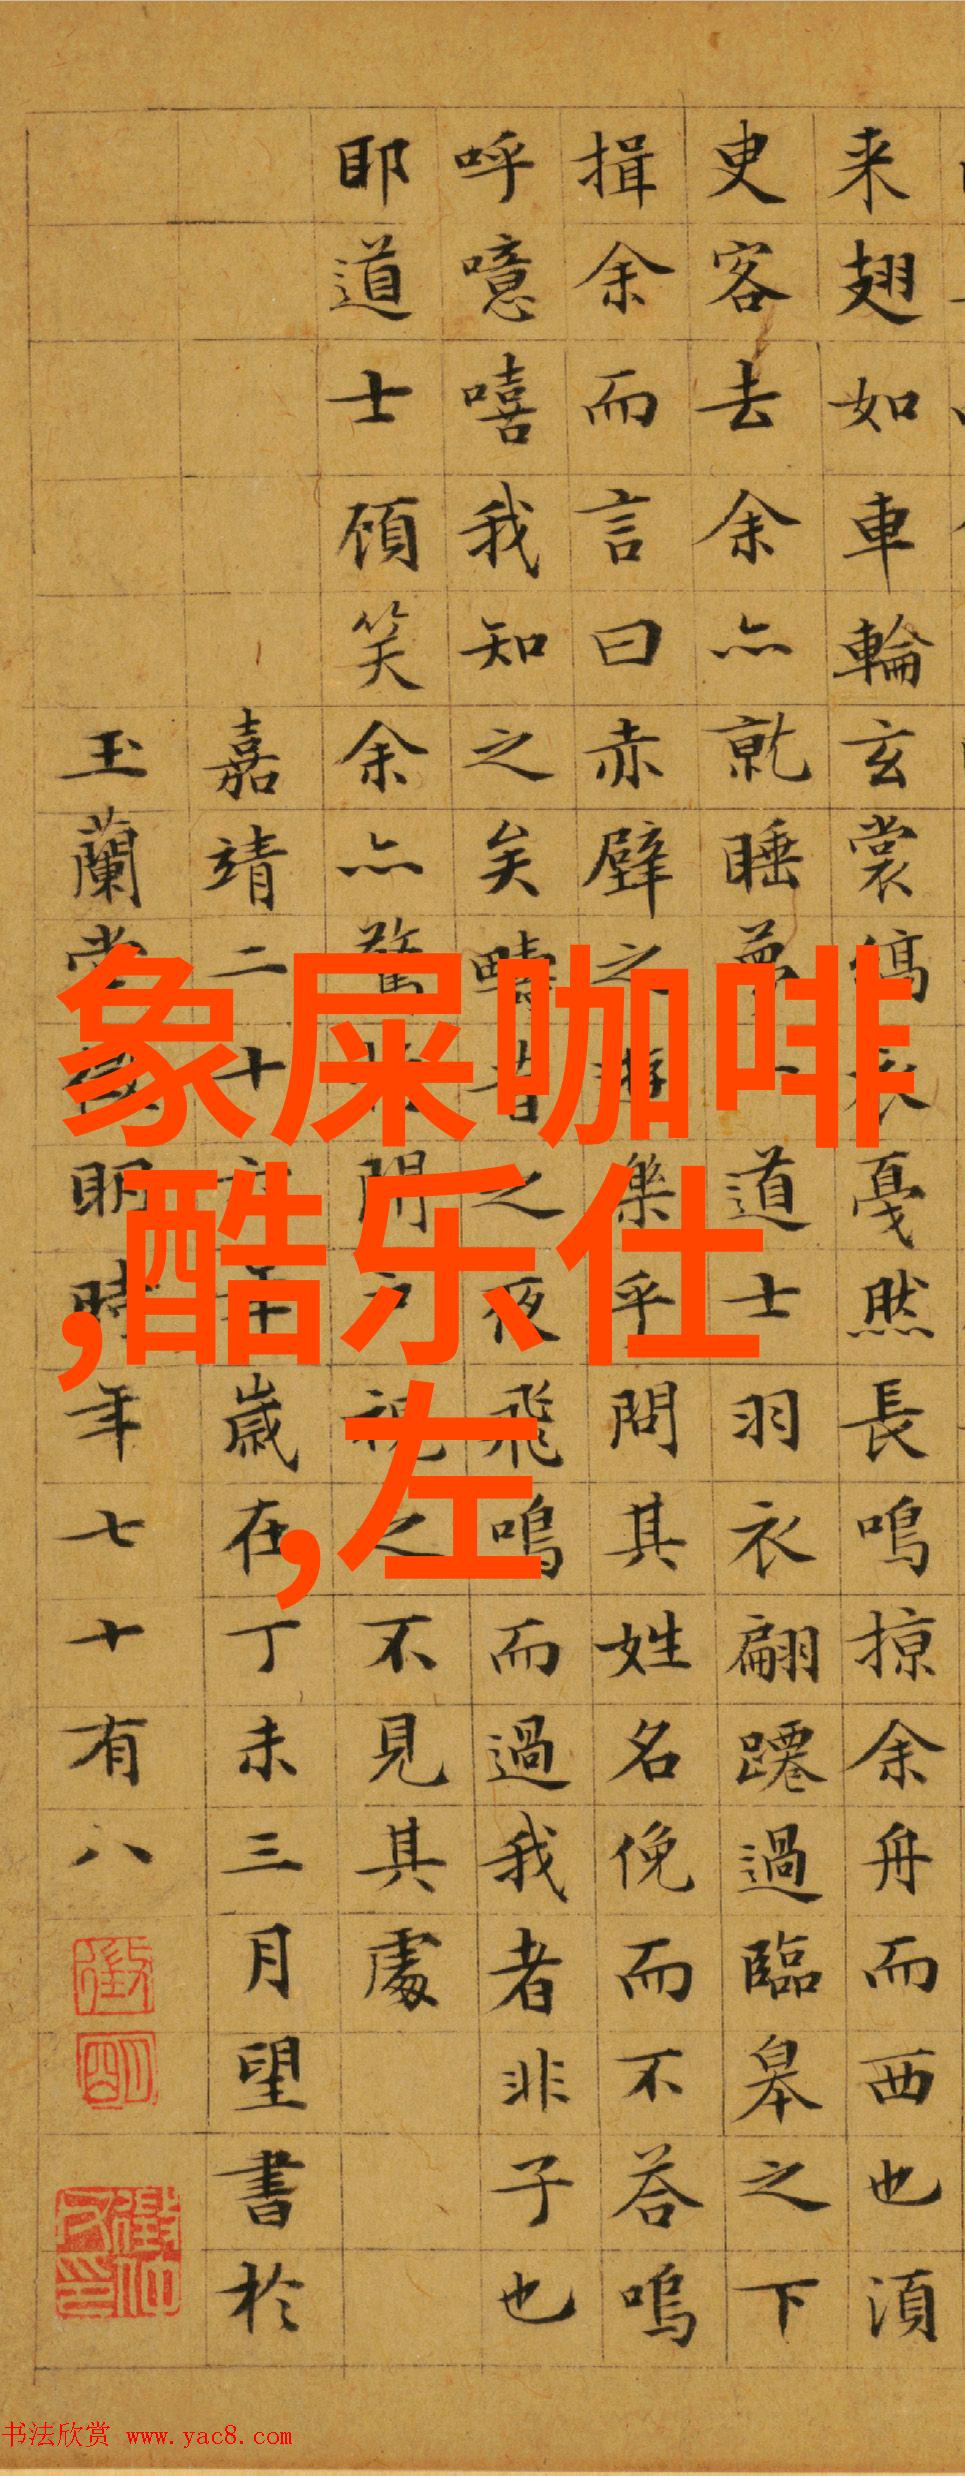 来翅如車輪玄裳縞衣戞然長鳴掠余舟而西也湏
叓客去余亦就睡夢一道士羽衣翩躚過臨皋之下
揖余而言曰赤壁之遊樂乎問其姓名俛而不荅嗚
呼噫嘻我知之矣疇昔之夜飛鳴而過我者非子也
耶道士頋笑余亦驚悟開戶視之不見其處
嘉靖二十六年歲在丁未三月望書於
玉蘭堂徵明時年七十有八
象屎咖啡
,酷乐仕
,左
书法欣赏 www.yac8.com